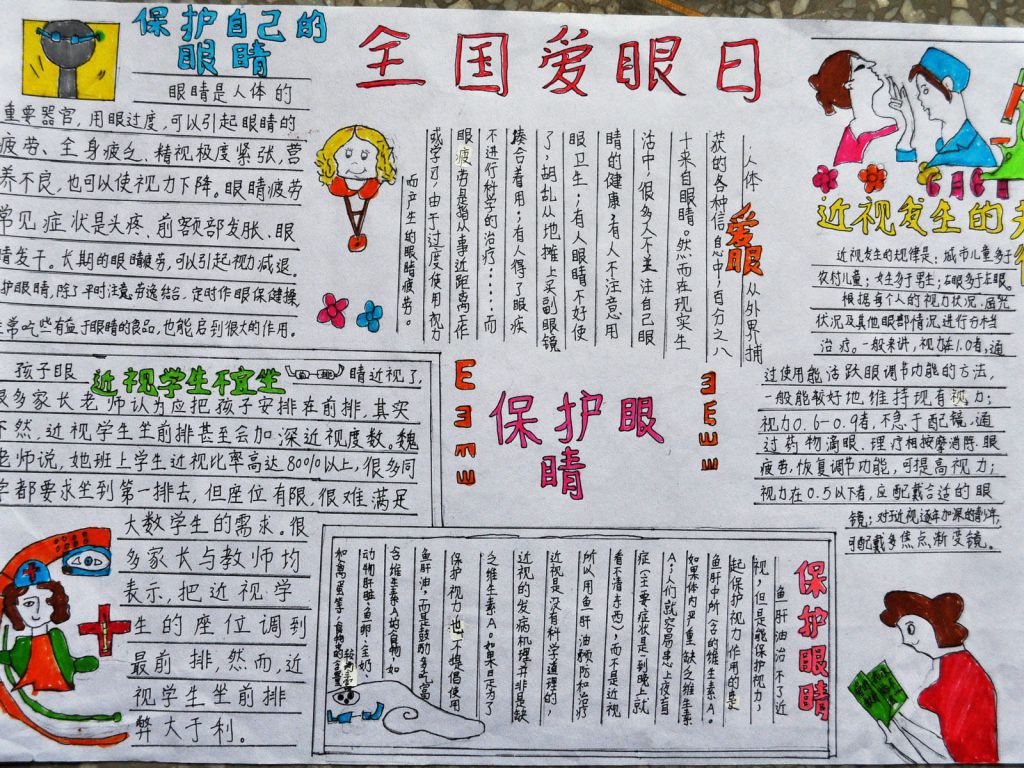 全国爱眼日
保护自己的
眼睛
眼睛是人体的
重要器官，用眼过度，可以引起眼睛的
疲劳、全身疲乏、精视极度紧张，营
养不良，也可以使视力下降。眼睛疲劳
常见症状是头疼、前额部发胀、眼
睛发干。长期的眼睛疲劳，可以引起视力减退。
护眼睛，除了平时注意劳逸结合，定时作眼保健操，
常吃些有益于眼睛的食品，也能起到很大的作用。
爱眼
人体从外界捕
获的各种信息中，百分之八
十来自眼睛。然而在现实生
活中，很多人不关注自己眼
睛的健康，有人不注意用
眼卫生；有人眼睛不好使
了，胡乱从地摊上买副眼镜
凑合着用；有人得了眼疾
不进行科学的治疗……而
眼疲劳是指从事近距离工作
或学习，由于过度使用视力
而产生的眼睛疲劳。
近视发生的
近视发生的规律是：城市儿童多于
农村儿童；女生多于男生；右眼多于左眼。
根据每个人的视力状况、
状况及其他眼部情况，进行分档
治疗。一般来讲，视力在1.0者，通
过使用能活跃眼调节功能的方法，
一般能较好地维持现有视力；
视力0.6-0.9者，不急于配镜，通
过药物滴眼、理疗相按摩消除眼
疲劳，恢复调节功能，可提高视力；
视力在0.5以下者，应配戴合适的眼
镜；对于近视逐年加深的青少年，
可配戴多焦点渐变镜。
近视学生不宜坐
孩子眼睛近视了，
很多家长老师认为应把孩子安排在前排，其实
不然，近视学生坐前排甚至会加深近视度数。魏
老师说，她班上学生近视比率高达80%以上，很多同
学都要求坐到第一排去，但座位有限，很难满足
大数学生的需求。很
多家长与教师均
表示，把近视学
生的座位调到
最前排，然而，近
视学生坐前排
弊大于利。
E
E
E
E
保护眼
睛
保护眼睛
鱼肝油治不了近
视，但是能保护视力，
起保护视力作用的是
鱼肝中所含的维生素A。
如果体内严重缺乏维生素
A，人们就容易患上夜盲
症（主要症状是一到晚上就
看不清东西），而不是近视
所以用鱼肝油预防和治疗
近视是没有科学道理的，
近视的发病机理并非是缺
乏维生素A。如果日常为了
保护视力也不提倡使用
鱼肝油，而是鼓励多吃富
含维生素A的食物，如
动物肝脏、鱼卵、全奶、